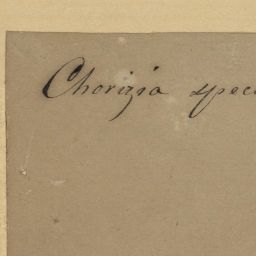 Chorizia spec